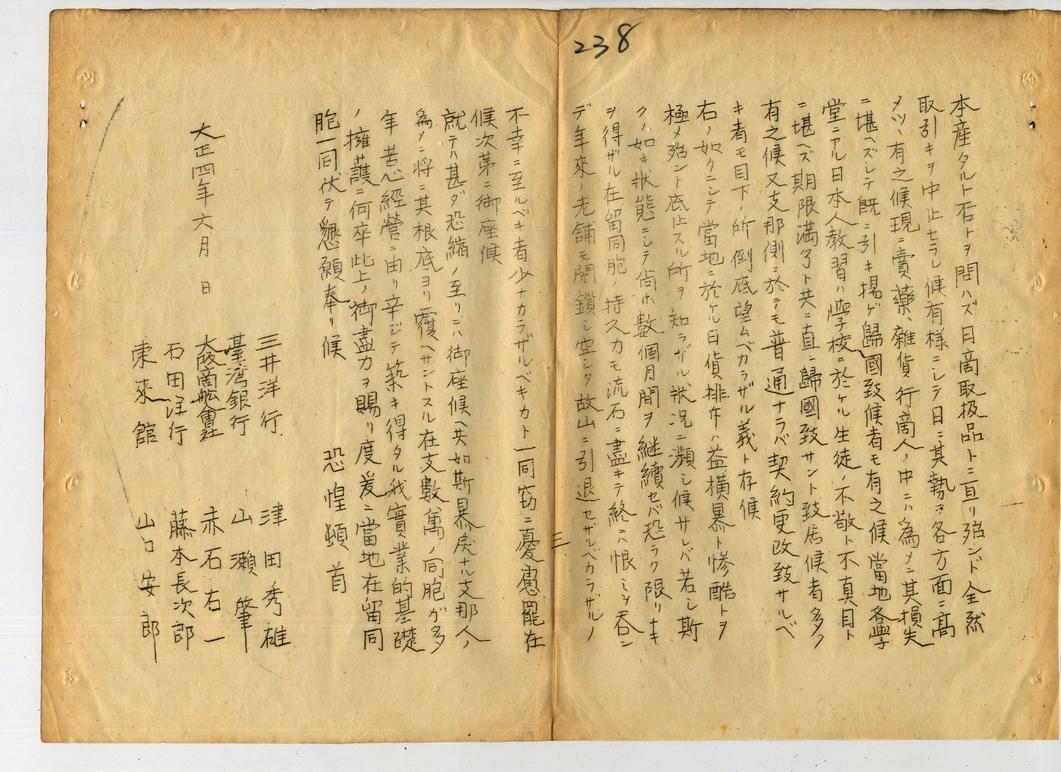 238
本産タルト否トヲ問ハズ日商取扱品トニ亘リ殆ンド全然
取引キヲ中止セラレ候有様ニシテ日ニ其勢ヲ各方面ニ高
メツヽ有之候現ニ賣藥、雜貨行商人ノ中ニハ為メニ其損失
ニ堪ヘズシテ既ニ引キ揚ゲ歸國致候者モ有之候當地各學
堂ニアル日本人教習ハ學校ニ於ケル生徒ノ不敬ト不真目ト
ニ堪ヘズ期限満了ト共ニ直ニ歸國致サント致居候者多ク
有之候又支那側ニ於テモ普通ナラバ契約更改致サルベ
キ者モ目下ノ所倒底望ムベカラザル義ト存候
右ノ如クニシテ當地ニ於ケル日貨排斥ハ益横暴ト惨酷トヲ
極メ殆ント底止スル所ヲ知ラザル状況ニ瀕シ候サレバ若シ斯
クノ如キ状態ニシテ尚ホ數個月間ヲ継續セバ恐ラク限リキ
ヲ得ザル在留同胞ノ持久力モ流石ニ盡キテ終ニハ恨ミヲ呑ン
デ年來ノ老舗モ閉鎖シ空シク故山ニ引退セザルベカラザルノ
三
不幸ニ至ルベキ者少ナカラザルベキカト一同窃ニ憂慮罷在
候次第ニ御座候
就テハ甚ダ恐縮ノ至リニハ御座候ヘ共如斯暴戻ナル支那人ノ
為メニ將ニ其根底ヨリ覆ヘサントスル在支數萬ノ同胞ガ多
年苦心經營ニ由リ辛ジテ築キ得タル我實業的基礎
ノ擁護ニ何卒此上ノ御盡力ヲ賜リ度爰ニ當地在留同
胞一同伏テ懇願奉リ候 恐惶頓首
大正四年六月 日
三井洋行 津田秀雄
臺灣銀行 山瀬肇
大阪商船會社 赤石右一
石田洋行 藤本長次郎
東來館 山口安郎